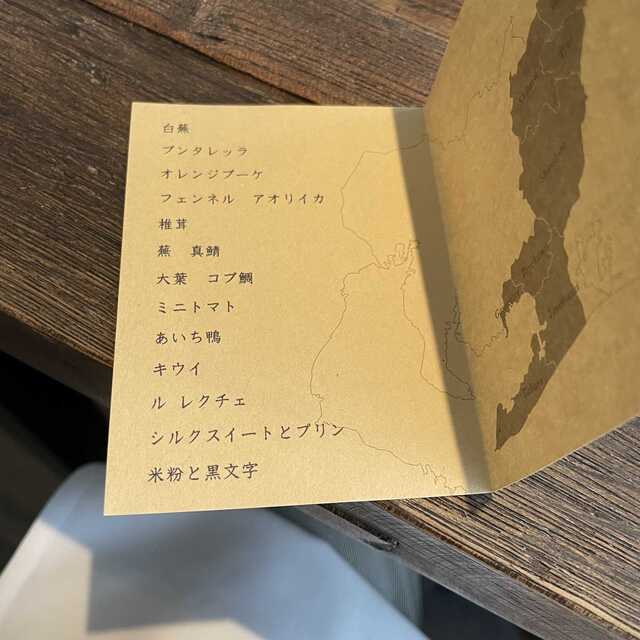 白蕪
プンタレッラ
オレンジブーケ
フェンネル　アオリイカ
椎茸
蕪　真鯖
大葉　コブ鯛
ミニトマト
あいち鴨
キウイ
ル レクチェ
シルクスイートとプリン
米粉と黒文字